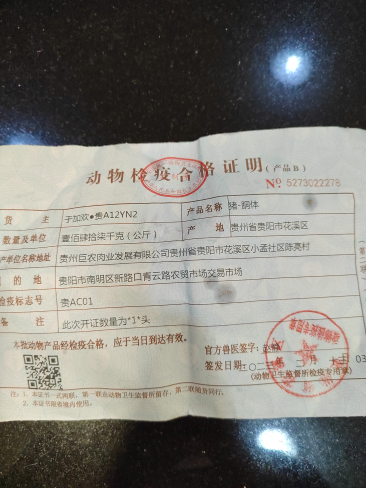 动物检疫合格证明(产品B)
No 5273022278
货 主 子加欢●贵A12YN2 产品名称 猪-胴体
数量及单位 壹佰肆拾柒千克(公斤) 产 地 贵州省贵阳市花溪区
产单位名称地址 贵州巨农肉业发展有限公司贵州省贵阳市花溪区小孟社区陈亮村
的 地 贵阳市南明区新路口青云路农贸市场交易市场
检疫标志号 贵AC01
备 注 此次开证数量为"1"头
本批动物产品经检疫合格,应于当日到达有效。
官方兽医签字:
签发日期:二〇二 月 03
(动物卫生监督所检疫专用章)
注:1. 本证书一式两联,第一联由动物卫生监督所留存,第二联随货同行。
2. 本证书限省境内使用。